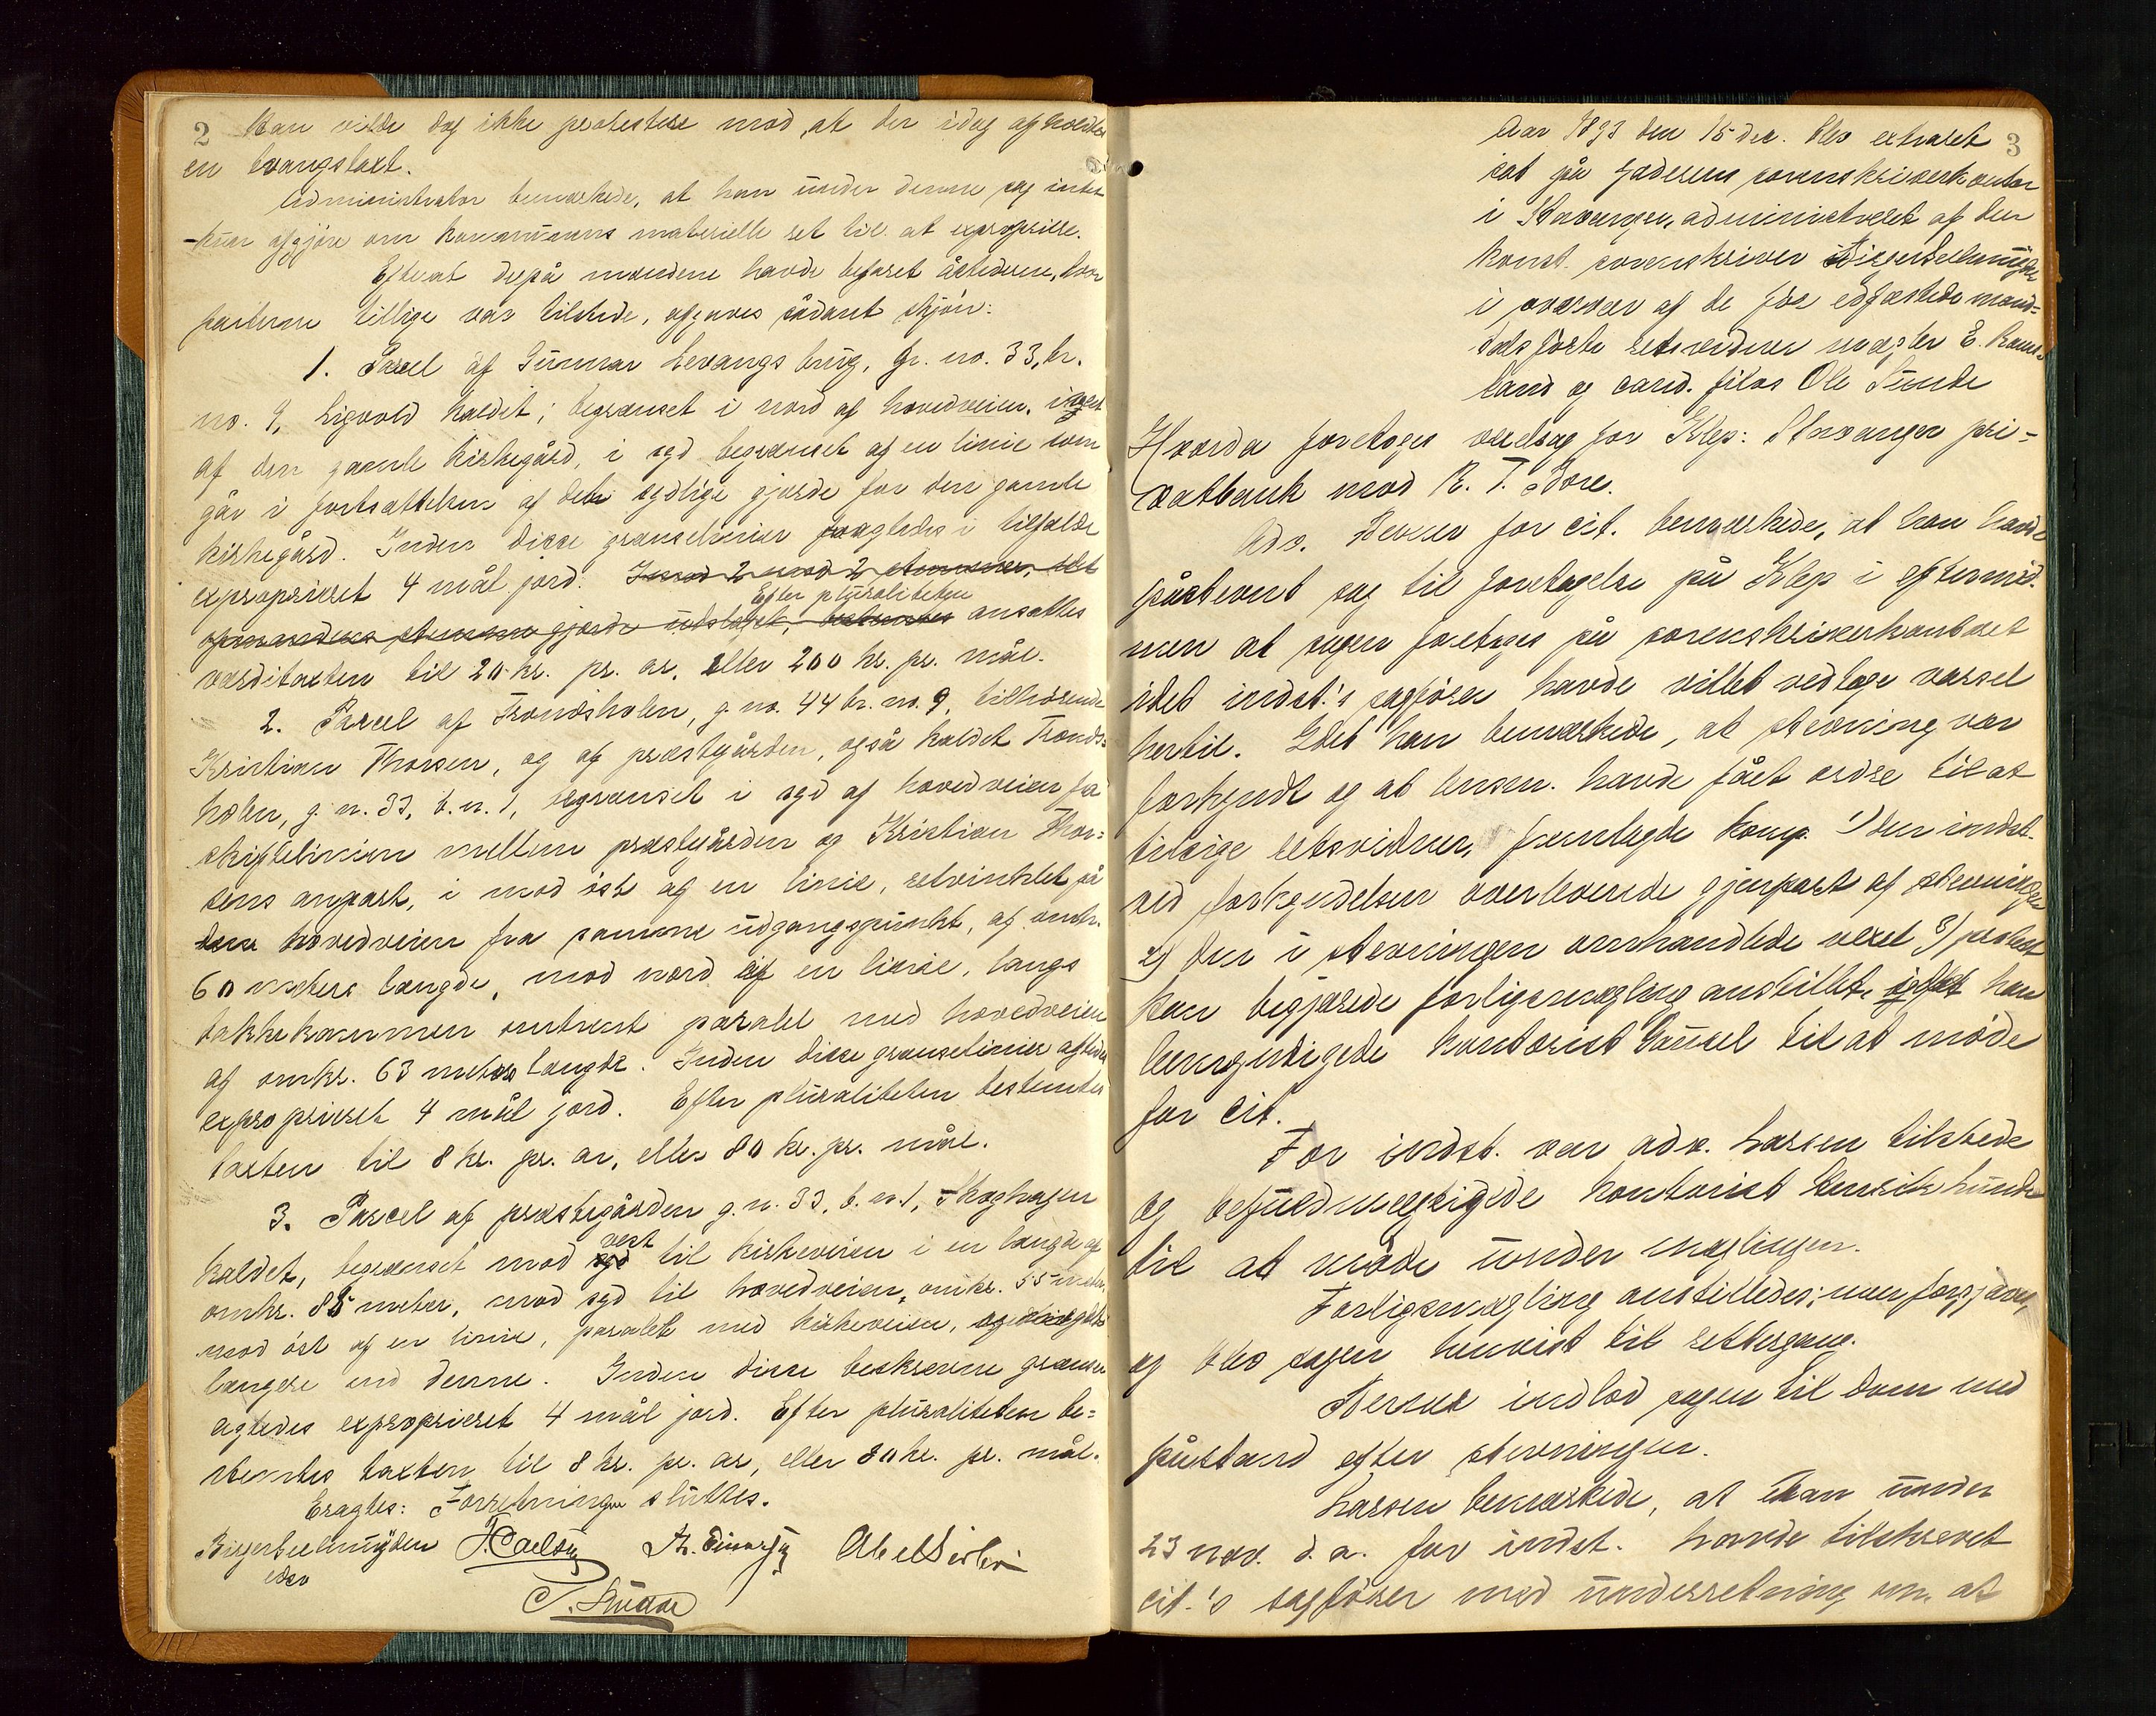 2 Han vilde dog ikke protestere mod, at der idag afholdtes
en tvangstaxt.
Administrator bemærkede, at han under denne sag intet
kan afgjøre om kommunens materielle ret til at expropriere.
Efterat derpå mændene havde befaret åstederne, hvor
parterne tillige var tilstede, afgaves sådant skjøn:
1. Parcel af Gunnar Levangs brug, gr. no. 33, br.
no. 9, Ligvold kaldet; begrænset i nord af hovedveien, i vest
af den gamle kirkegård, i syd begrænset af en linie som
går i fortsættelsen af det sydlige gjærde for den gamle
kirkegård. Inden disse grænselinier fragtedes i tilfælde
exproprieret 4 mål jord. Imod 2 mod 2 stemmer, idet
Efter pluraliteten
opmandens stemme gjorde udslaget, bestemtes ansattes
værditaxten til 20 kr. pr. ar, eller 200 kr. pr. mål.
2. Parcel af Trondsholen, g. no. 44 br. no. 9, tilhørende
Kristian Thorsen, og af præstgården, også kaldet Tronds=
holen, g. n. 33, b. n. 1, begrænset i syd af hovedveien fra
skiftelinien mellem præstegården og Kristian Thor=
sens anpart, i mod øst af en linie, retvinklet på
hovedveien fra samme udgangspunkt, af omkr.
60 meters længde, mod nord af en linie, langs
bakkekammen omtrent paralel med hovedveien
af omkr. 63 meters længde. Inden disse grænselinier agtedes
exproprieret 4 mål jord. Efter pluraliteten bestemtes
taxten til 8 kr. pr. ar, eller 80 kr. pr. mål.
3. Parcel af præstegården g. n. 33, b. n. 1, Skoghagen
vest
kaldet, begrænset mod syd til kirkeveien i en længde af
omkr. 85 meter, mod syd til hovedveien, omkr. 55 meter,
mod øst af en linie, paralel med kirkeveien,
længere end denne. Inden disse beskrevne grænser
agtedes exproprieret 4 mål jord. Efter pluraliteten be=
stemtes taxten til 8 kr. pr. ar, eller 80 kr. pr. mål.
Eragtes: Forretningen sluttes.
3
Aar 1893 den 15 dec. blev extraret
sat på Jæderens sorenskriverkontor
i Stavanger, administreret af den
konst. sorenskriver
i overvær af de før edfæstede mand=
talsførte retsvidner E.
land og cand. filos Ole Sunde
Hvorda foretoges vexelsag for Klep: Stavanger pri=
vatbank mod R. T. Bore.
Adv. for cit. bemærkede, at han havde
påstevnt sag til foretagelse på Klep i eftermid.
men at sagen foretoges på sorenskriverkontoret
idet indst.'s sagfører havde villet vedtage varsel
hertil. Idet han bemærkede, at stevning var
forkyndt og at lensm. havde fået ordre til at
tilsige retsvidner, fremlagde komp. 1) den indst.
ved forkyndelsen overleverede gjenpart af stevningen
2) den i stevningen omhandlede vexel 3) protest
Han begjærede forligsmægling anstillet, idet han
bemyndigede kontorist til at møde
for cit.
For indst. var adv. Larsen tilstede
og befuldmægtigede kontorist Henrik Lunde
til at møde under mæglingen.
Forligsmægling anstilledes; men forgjæves,
og blev sagen henvist til rettergang.
indlod sagen til dom med
påstand efter stevningen.
Larsen bemærkede, at han under
23 nov. d. a. for indst. havde tilskrevet
cit.'s sagfører med underretning om, at